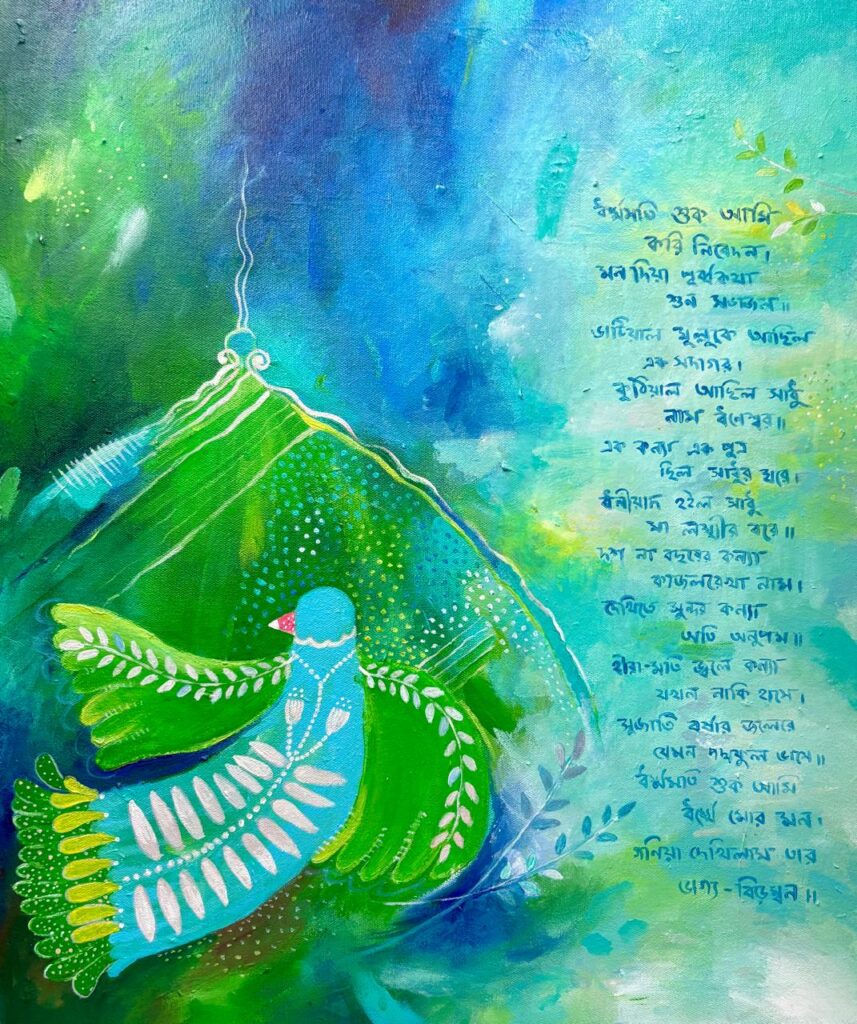 ধর্ম্মমতি শুক আমি
করি নিবেদন।
মন দিয়া পূর্ব্বকথা
শুন সভাজন॥
ভাটিয়াল মুল্লুকে আছিল
এক সদাগর।
কুঠিয়াল আছিল সাধু
নাম ধনেশ্বর॥
এক কন্যা এক পুত্র
ছিল সাধুর ঘরে।
ধনীয়াদ হইল সাধু
মা লক্ষ্মীর বরে॥
দশ না বছরের কন্যা
কাজলরেখা নাম।
দেখিতে সুন্দর কন্যা
অতি অনুপম॥
হীরা-মতি জ্বলে কন্যা
যখন নাকি হাসে।
সুজাতি বর্ষার জলেরে
যেমন পদ্মফুল ভাসে॥
ধর্ম্মমতি শুক আমি
ধর্ম্মে মোর মন।
গনিয়া দেখিলাম তার
ভাগ্য-বিড়ম্বন॥